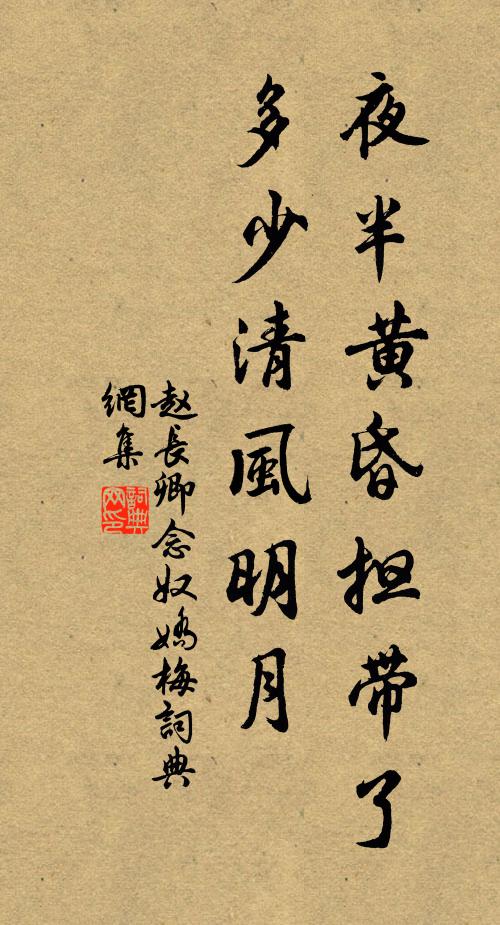 夜半黄昏担带了
多少清風明月
赵長卿念奴嬌梅詞典
網集
詞典
网印